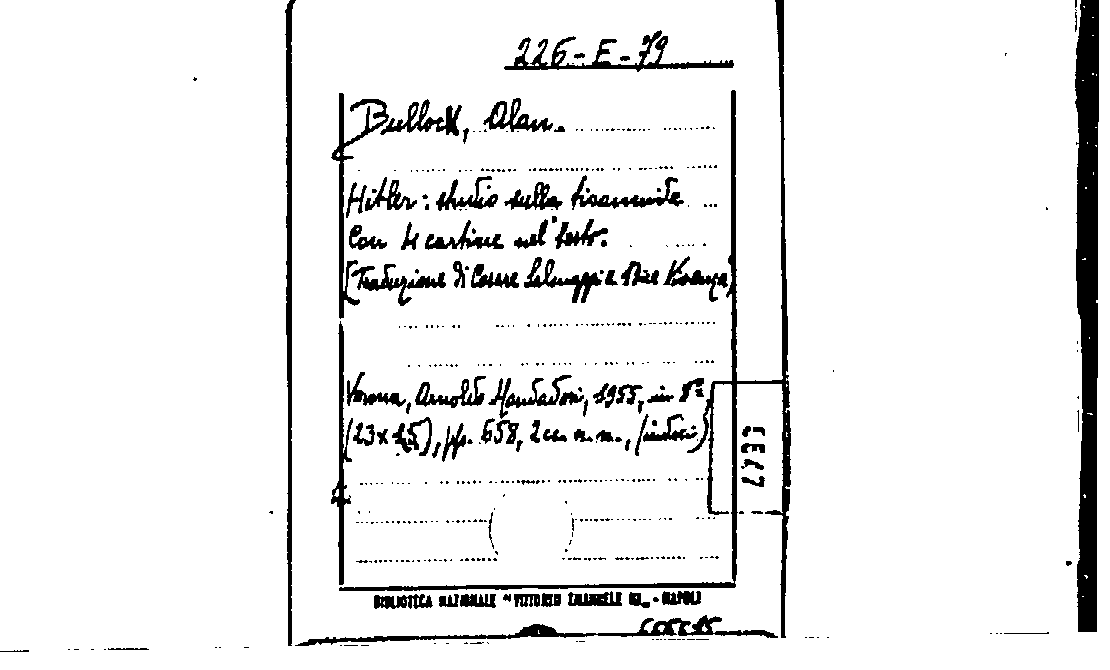 226-E-79
Bullock, Alan.
Hitler: studio sulla tirannide
Con 4 cartine nel testo.
[Traduzione di Cesare Salmaggi e
Verona, Arnoldo Mondadori, 1955, in 8°,
(23x15), pp. 658, 2 cc. n. n., (indici)
BIBLIOTECA NAZIONALE "VITTORIO EMANUELE III" - NAPOLI